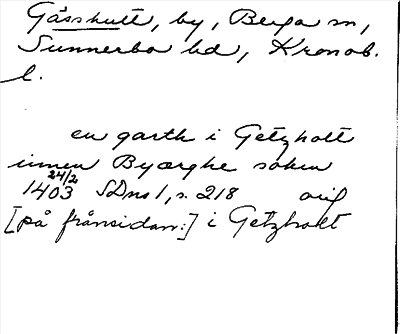 Gåsshult, by, Berga sn,
Sunnerbo hd, Kronob.
l.
en garth i Getzholt
innen Byærghe soken
24/2
1403 SDns 1, s. 218 orig
[på frånsidan:] i Getzholt